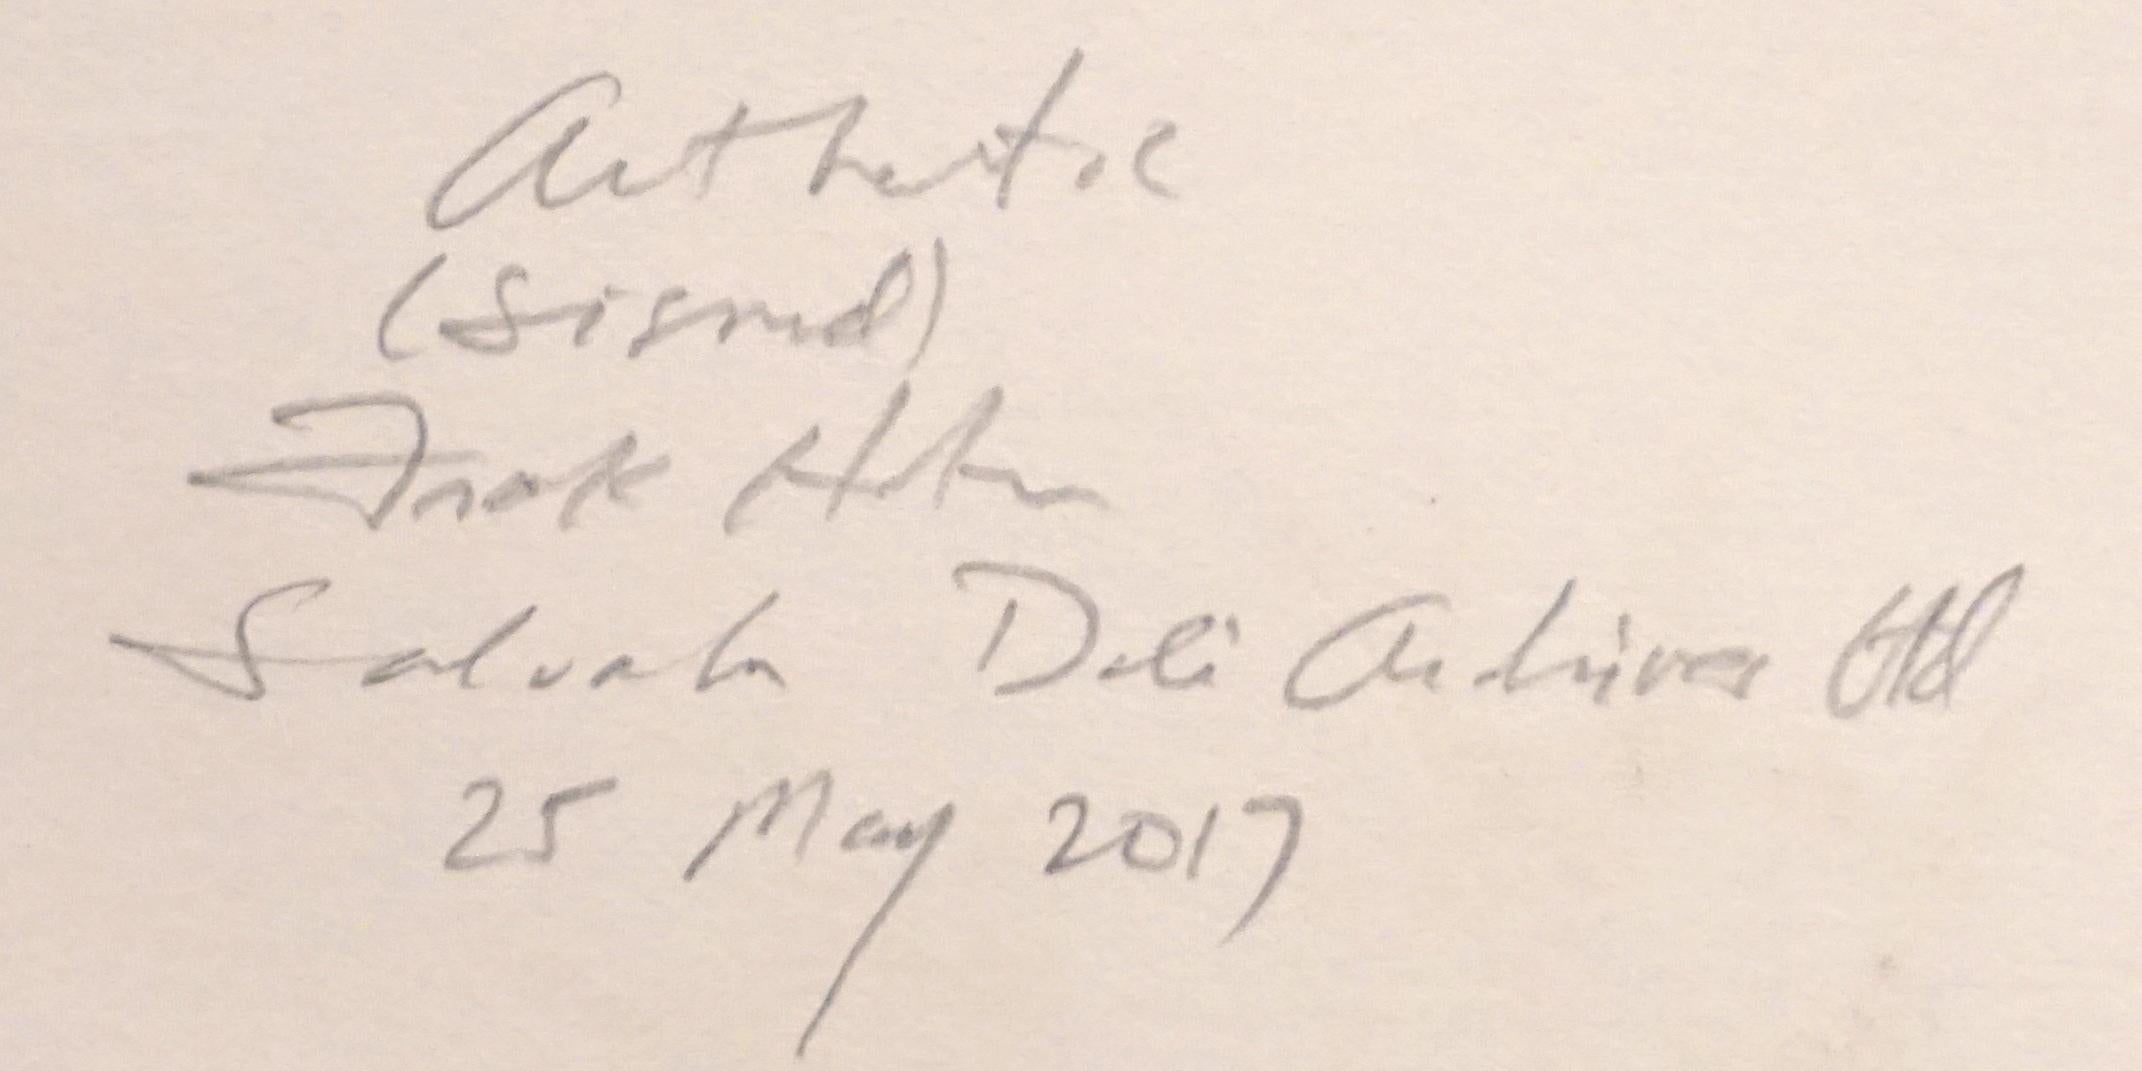 Authentic
(Signed)
Frank Hunter
Salvador Dali Archives Ltd
25 May 2017